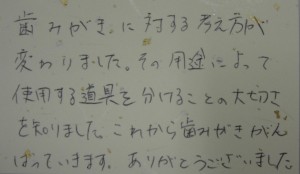 歯みがき、に対する考え方が
変わりました。その用途によって
使用する道具を分けることの大切さ
を知りました。これから歯みがきがん
ばっていきます。ありがとうございました。